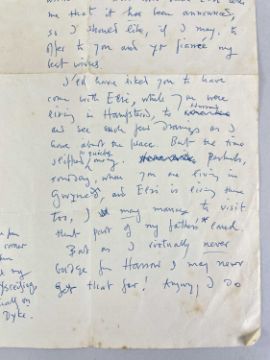 me that it has been announced,
so I should like, if I may, to
offer to you and yr fiancé my
best wishes.
I'd have liked you to have
come with Elsi, while you were
living in Hampstead, to Harrow
and see such few drawings as I
have about the place. But the time
slipped so quickly away. Perhaps,
someday, when you are living in
Gwynedd, and Elsi is living there
too, I may manage to visit
that part of my father's land.
But as I virtually never
budge from Harrow I may never
get that far! Anyway, I do
corner
my
Dyke.